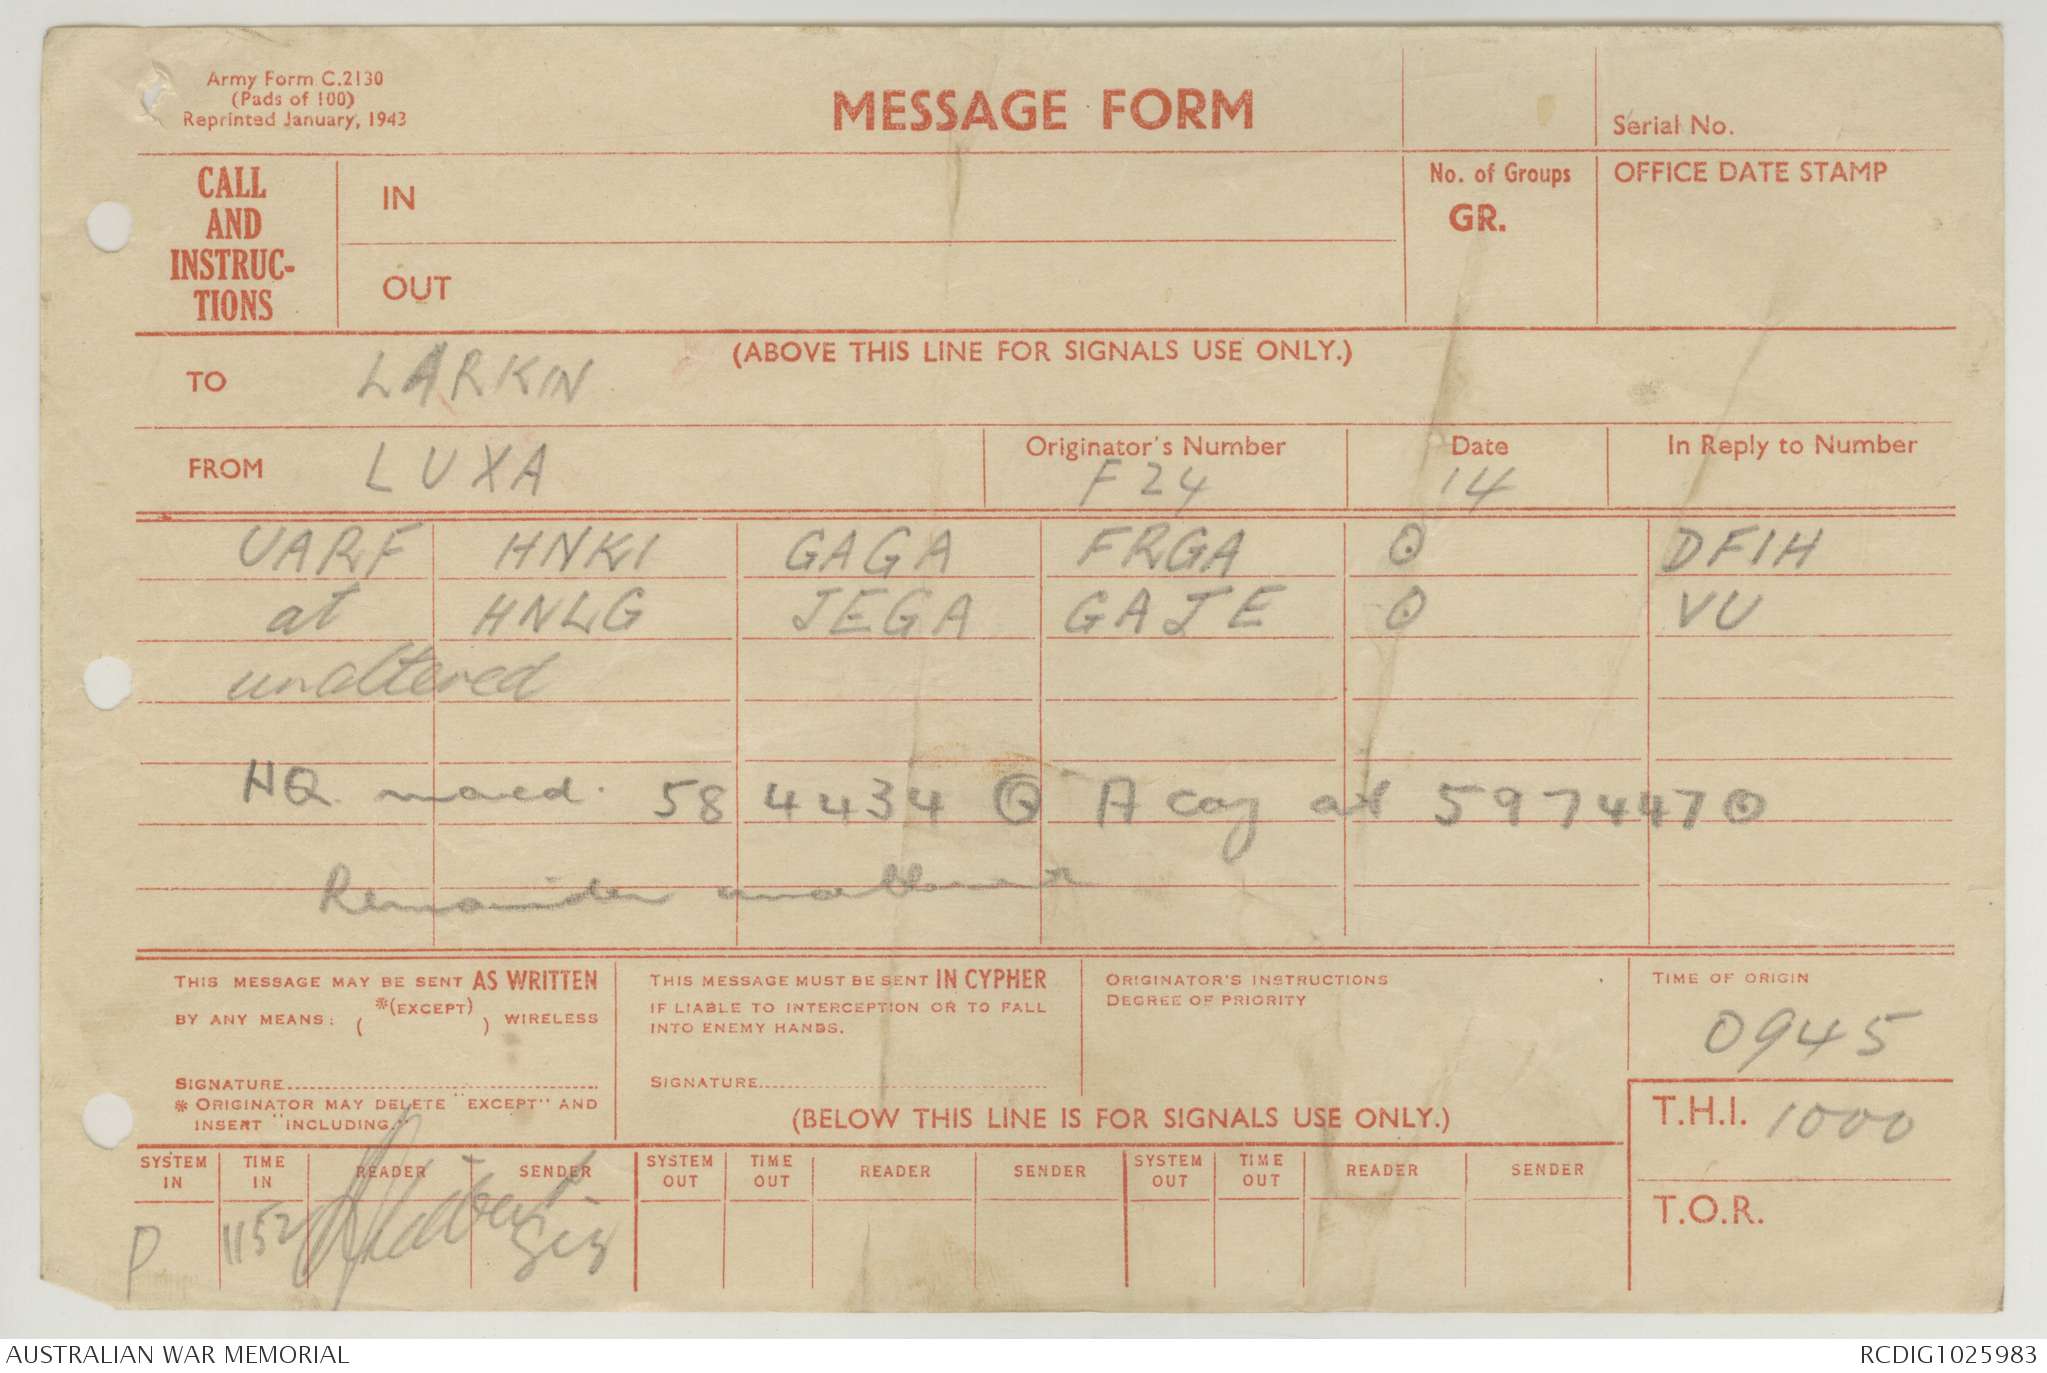 Army Form C.2130
(Pads of 100)
Reprinted January, 1943
MESSAGE FORM
Serial No.
CALL AND INSTRUC-TIONS
IN
OUT
No. of Groups
GR.
OFFICE DATE STAMP
(ABOVE THIS LINE FOR SIGNALS USE ONLY.)
TO LARKIN
FROM LUXA
Originator's Number F24
Date 14
In Reply to Number
UARF HNKI GAGA FRGA ⊙ DFIH
at HNLG JEGA GAJE ⊙ VU
unaltered
HQ moved. 58 4434 ⊙ A coy at 597447 ⊙
Remainder unaltered
THIS MESSAGE MAY BE SENT AS WRITTEN
BY ANY MEANS: *(EXCEPT) ( ) WIRELESS
SIGNATURE
* ORIGINATOR MAY DELETE "EXCEPT" AND
INSERT "INCLUDING."
THIS MESSAGE MUST BE SENT IN CYPHER
IF LIABLE TO INTERCEPTION OR TO FALL
INTO ENEMY HANDS.
SIGNATURE
ORIGINATOR'S INSTRUCTIONS
DEGREE OF PRIORITY
TIME OF ORIGIN
0945
(BELOW THIS LINE IS FOR SIGNALS USE ONLY.)
T.H.I. 1000
T.O.R.
SYSTEM IN TIME IN READER SENDER SYSTEM OUT TIME OUT READER SENDER SYSTEM OUT TIME OUT READER SENDER
P 1152
AUSTRALIAN WAR MEMORIAL
RCDIG1025983